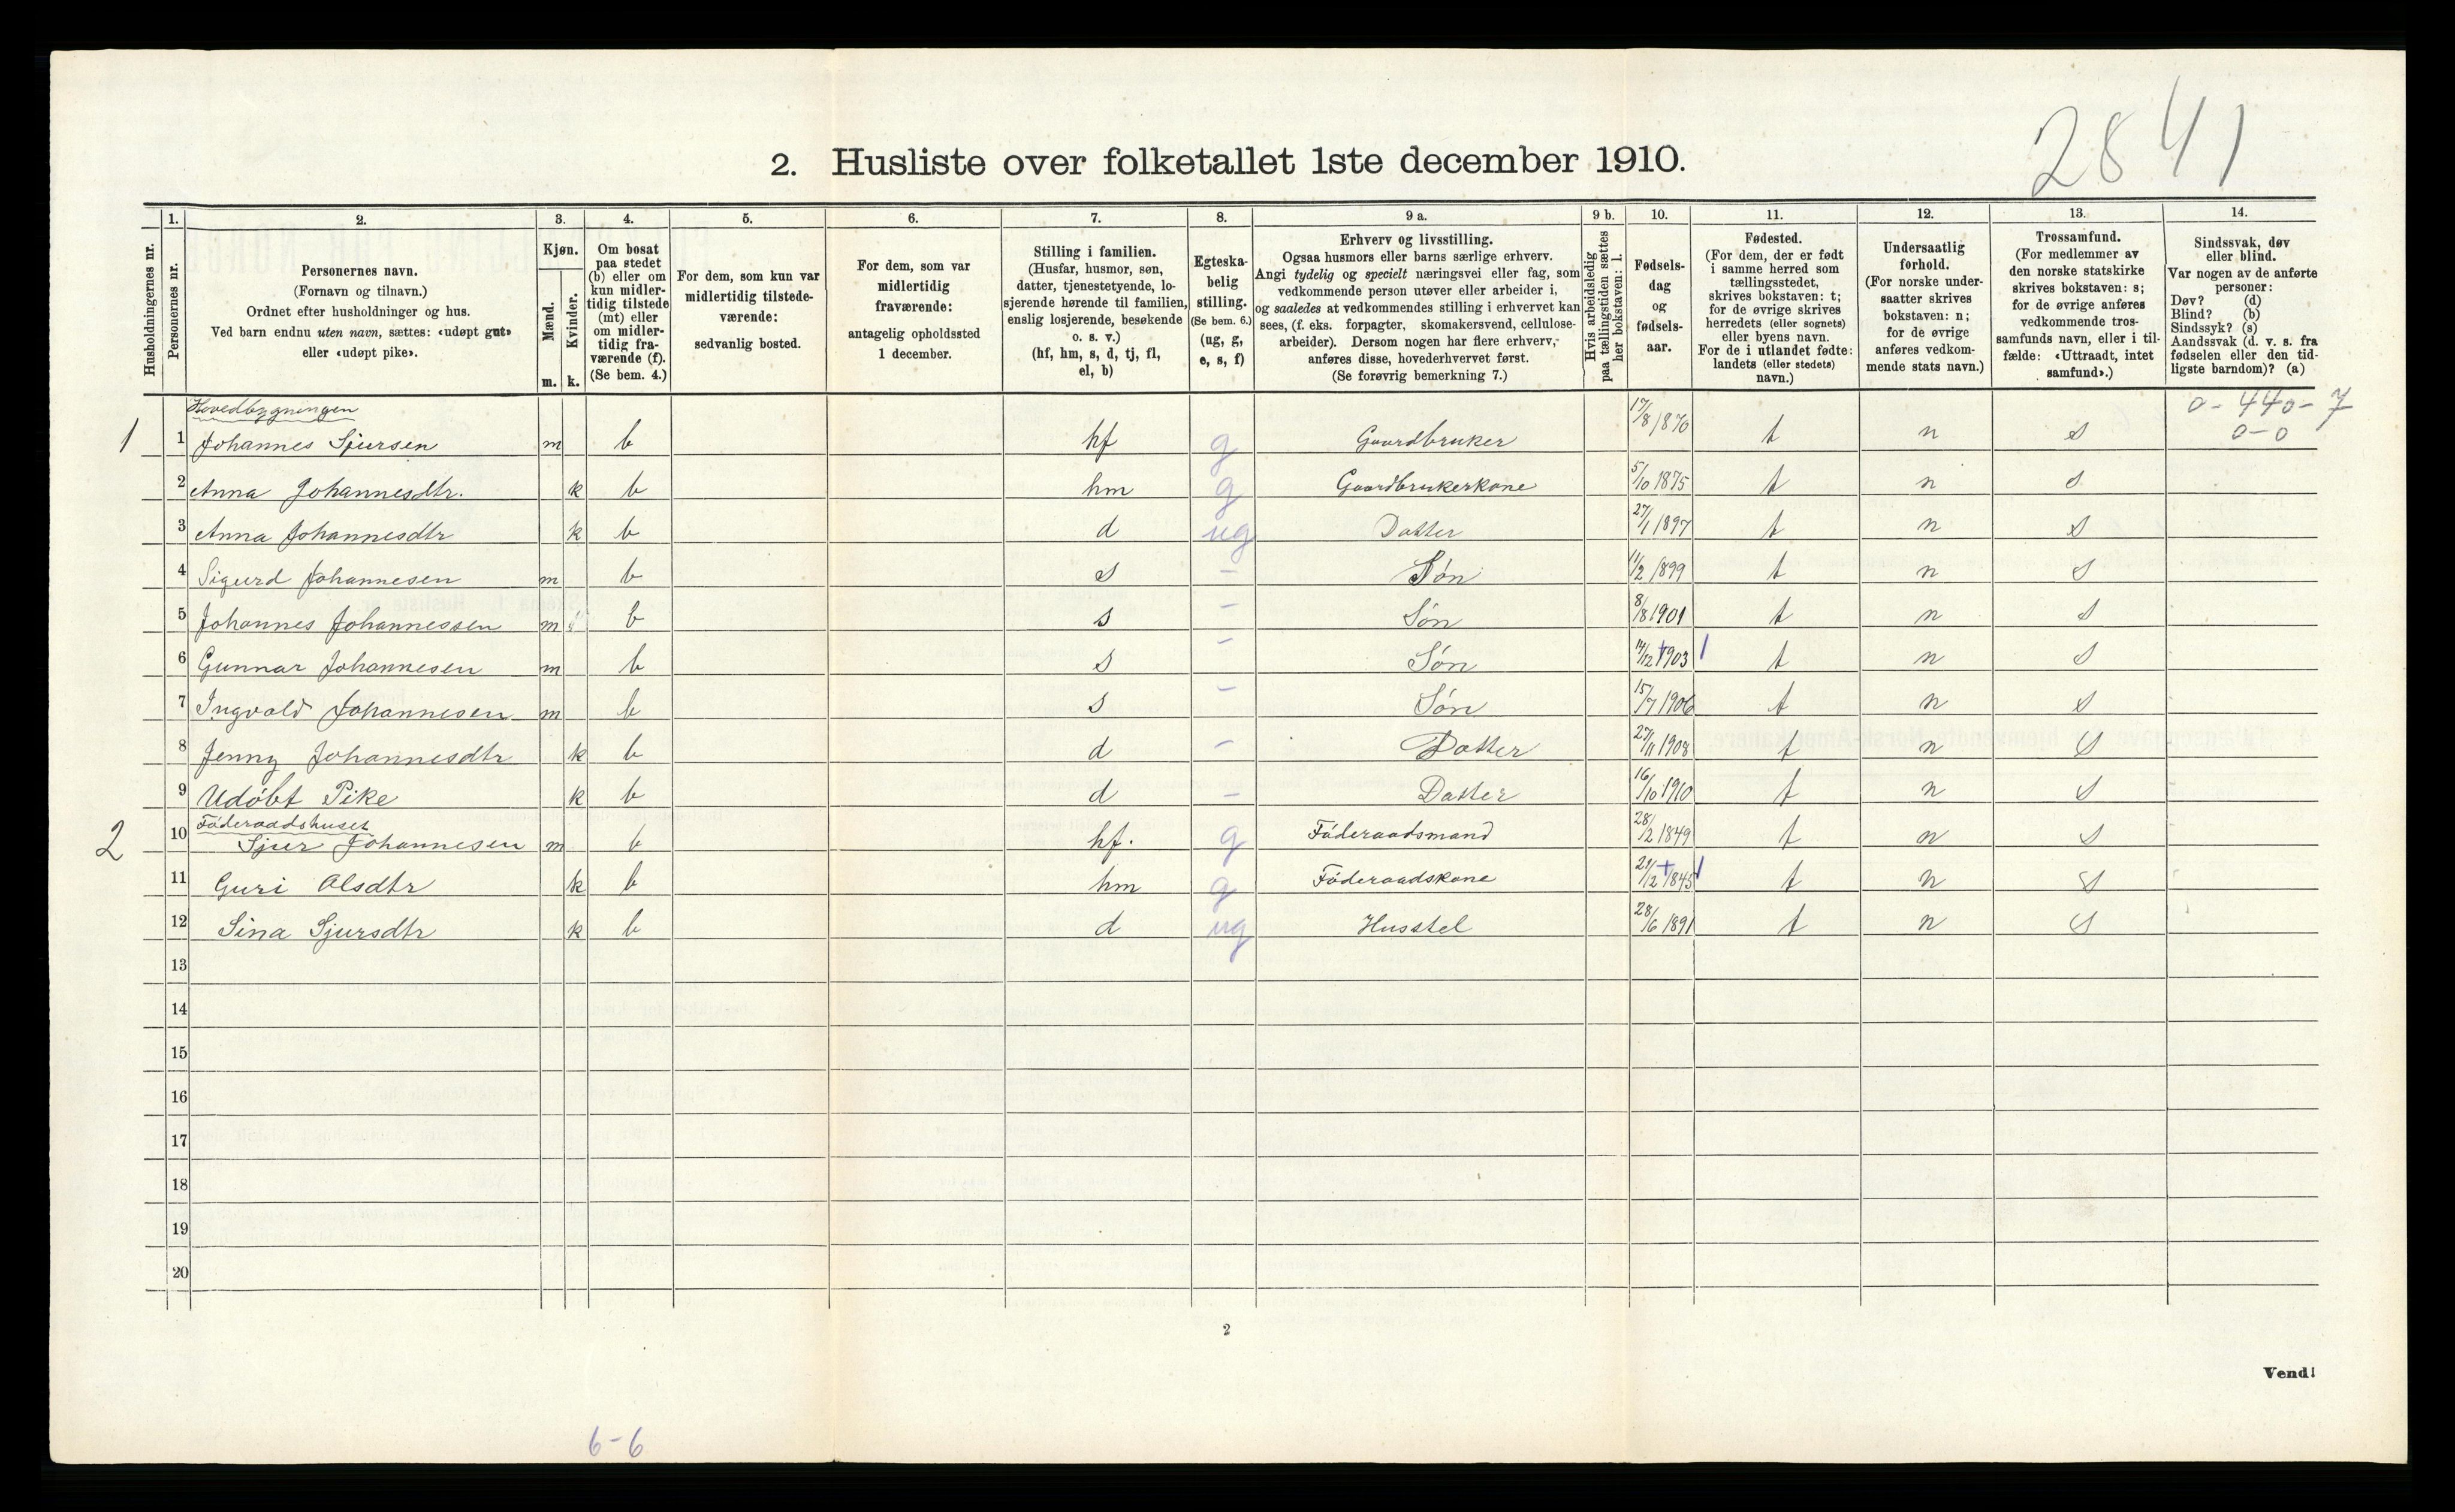 2841
2. Husliste over folketallet 1ste december 1910.
Husholdningernes nr.
1. Personernes nr.
2. Personernes navn.
(Fornavn og tilnavn.)
Ordnet efter husholdninger og hus.
Ved barn endnu uten navn, sættes: «udøpt gut»
eller «udøpt pike».
3. Kjøn.
Mænd. m.
Kvinder. k.
4. Om bosat
paa stedet
(b) eller om
kun midler-
tidig tilstede
(mt) eller
om midler-
tidig fra-
værende (f).
(Se bem. 4.)
5. For dem, som kun var
midlertidig tilstede-
værende:
sedvanlig bosted.
6. For dem, som var
midlertidig
fraværende:
antagelig opholdssted
1 december.
7. Stilling i familien.
(Husfar, husmor, søn,
datter, tjenestetyende, lo-
sjerende hørende til familien,
enslig losjerende, besøkende
o. s. v.)
(hf, hm, s, d, tj, fl,
el, b)
8. Egteska-
belig
stilling.
(Se bem. 6.)
(ug, g,
e, s, f)
9 a. Erhverv og livsstilling.
Ogsaa husmors eller barns særlige erhverv.
Angi tydelig og specielt næringsvei eller fag, som
vedkommende person utøver eller arbeider i,
og saaledes at vedkommendes stilling i erhvervet kan
sees, (f. eks. forpagter, skomakersvend, cellulose-
arbeider). Dersom nogen har flere erhverv,
anføres disse, hovederhvervet først.
(Se forøvrig bemerkning 7.)
9 b. Hvis arbeidsledig
paa tællingstiden sættes
her bokstaven: l.
10. Fødsels-
dag
og
fødsels-
aar.
11. Fødested.
(For dem, der er født
i samme herred som
tællingsstedet,
skrives bokstaven: t;
for de øvrige skrives
herredets (eller sognets)
eller byens navn.
For de i utlandet fødte:
landets (eller stedets)
navn.)
12. Undersaatlig
forhold.
(For norske under-
saatter skrives
bokstaven: n;
for de øvrige
anføres vedkom-
mende stats navn.)
13. Trossamfund.
(For medlemmer av
den norske statskirke
skrives bokstaven: s;
for de øvrige anføres
vedkommende tros-
samfunds navn, eller i til-
fælde: «Uttraadt, intet
samfund».)
14. Sindssvak, døv
eller blind.
Var nogen av de anførte
personer:
Døv? (d)
Blind? (b)
Sindssyk? (s)
Aandssvak (d. v. s. fra
fødselen eller den tid-
ligste barndom)? (a)
Hovedbygningen 0-440-7
1 1 Johannes Sjursen m b hf g Gaardbruker 17/8 1876 t n s 0-0
2 Anna Johannesdtr. k b hm g Gaardbrukerkone 5/10 1875 t n s
3 Anna Johannesdtr k b d ug Datter 27/1 1897 t n s
4 Sigurd Johannesen m b s - Søn 11/2 1899 t n s
5 Johannes Johannessen m b s - Søn 8/8 1901 t n s
6 Gunnar Johannesen m b s - Søn 14/12 1903 t n s
7 Ingvald Johannesen m b s - Søn 15/7 1906 t n s
8 Jenny Johannesdtr k b d - Datter 27/11 1908 t n s
9 Udöbt Pike k b d - Datter 16/10 1910 t n s
Föderaadshuset
2 10 Sjur Johannesen m b hf. g Föderaadsmand 28/2 1849 t n s
11 Guri Olsdtr k b hm g Föderaadskone 21/12 1845 t n s
12 Sina Sjursdtr k b d ug Husstel 28/6 1891 t n s
13
14
15
16
17
18
19
20
2
Vend!
6-6